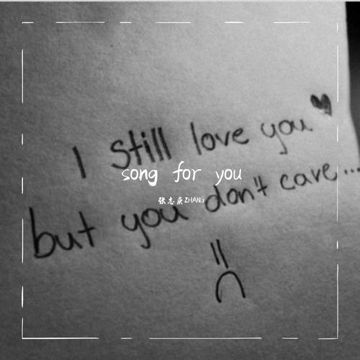 I still love you♥
song for you
but you don't care...